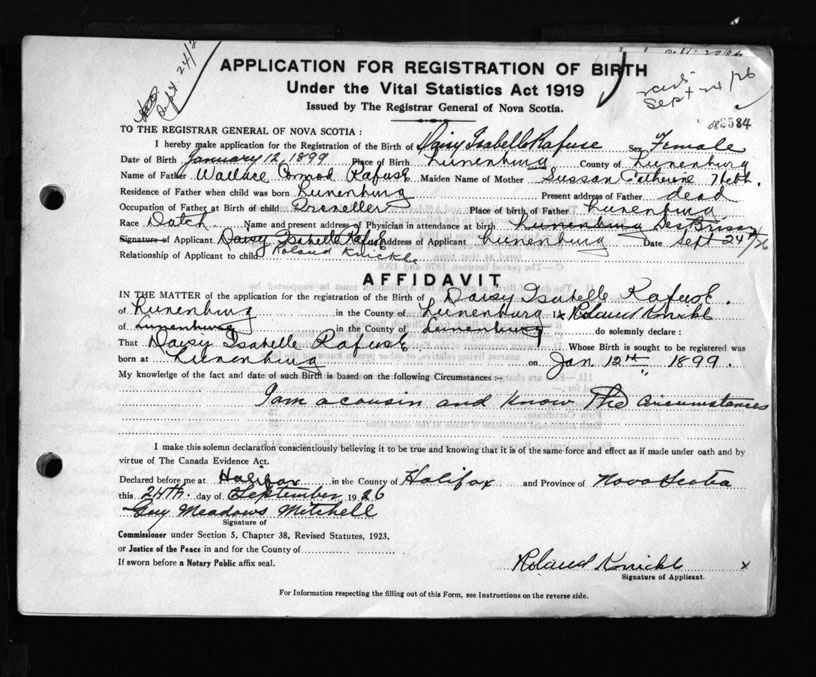 Sept 24/26
APPLICATION FOR REGISTRATION OF BIRTH
Under the Vital Statistics Act 1919
Issued by The Registrar General of Nova Scotia.
Sept 24/26
2584
TO THE REGISTRAR GENERAL OF NOVA SCOTIA :
I hereby make application for the Registration of the Birth of Daisy Isabelle Rafuse Sex Female
Date of Birth January 12, 1899 Place of Birth Lunenburg County of Lunenburg
Name of Father Wallace Rafuse Maiden Name of Mother Sussan Catherine Hebb.
Residence of Father when child was born Lunenburg Present address of Father dead
Occupation of Father at Birth of child Place of birth of Father Lunenburg
Race Dutch Name and present address of Physician in attendance at birth Lunenburg DesBrisay
Signature of Applicant Daisy Isabelle Rafuse Address of Applicant Lunenburg Date Sept 24th/26
Relationship of Applicant to child Roland Knickle
AFFIDAVIT
IN THE MATTER of the application for the registration of the Birth of Daisy Isabelle Rafuse.
of Lunenburg in the County of Lunenburg I, Roland Knickle
of Lunenburg in the County of Lunenburg do solemnly declare :
That Daisy Isabelle Rafuse Whose Birth is sought to be registered was
born at Lunenburg on Jan 12th 1899.
My knowledge of the fact and date of such Birth is based on the following Circumstances :-
I am a cousin and know the circumstances
I make this solemn declaration conscientiously believing it to be true and knowing that it is of the same force and effect as if made under oath and by
virtue of The Canada Evidence Act.
Declared before me at Halifax in the County of Halifax and Province of Nova Scotia
this 24th. day of September 1926
Guy Meadows Mitchell
Signature of
Commissioner under Section 5, Chapter 38, Revised Statutes, 1923,
or Justice of the Peace in and for the County of
If sworn before a Notary Public affix seal.
Roland Knickle x
Signature of Applicant.
For Information respecting the filling out of this Form, see Instructions on the reverse side.